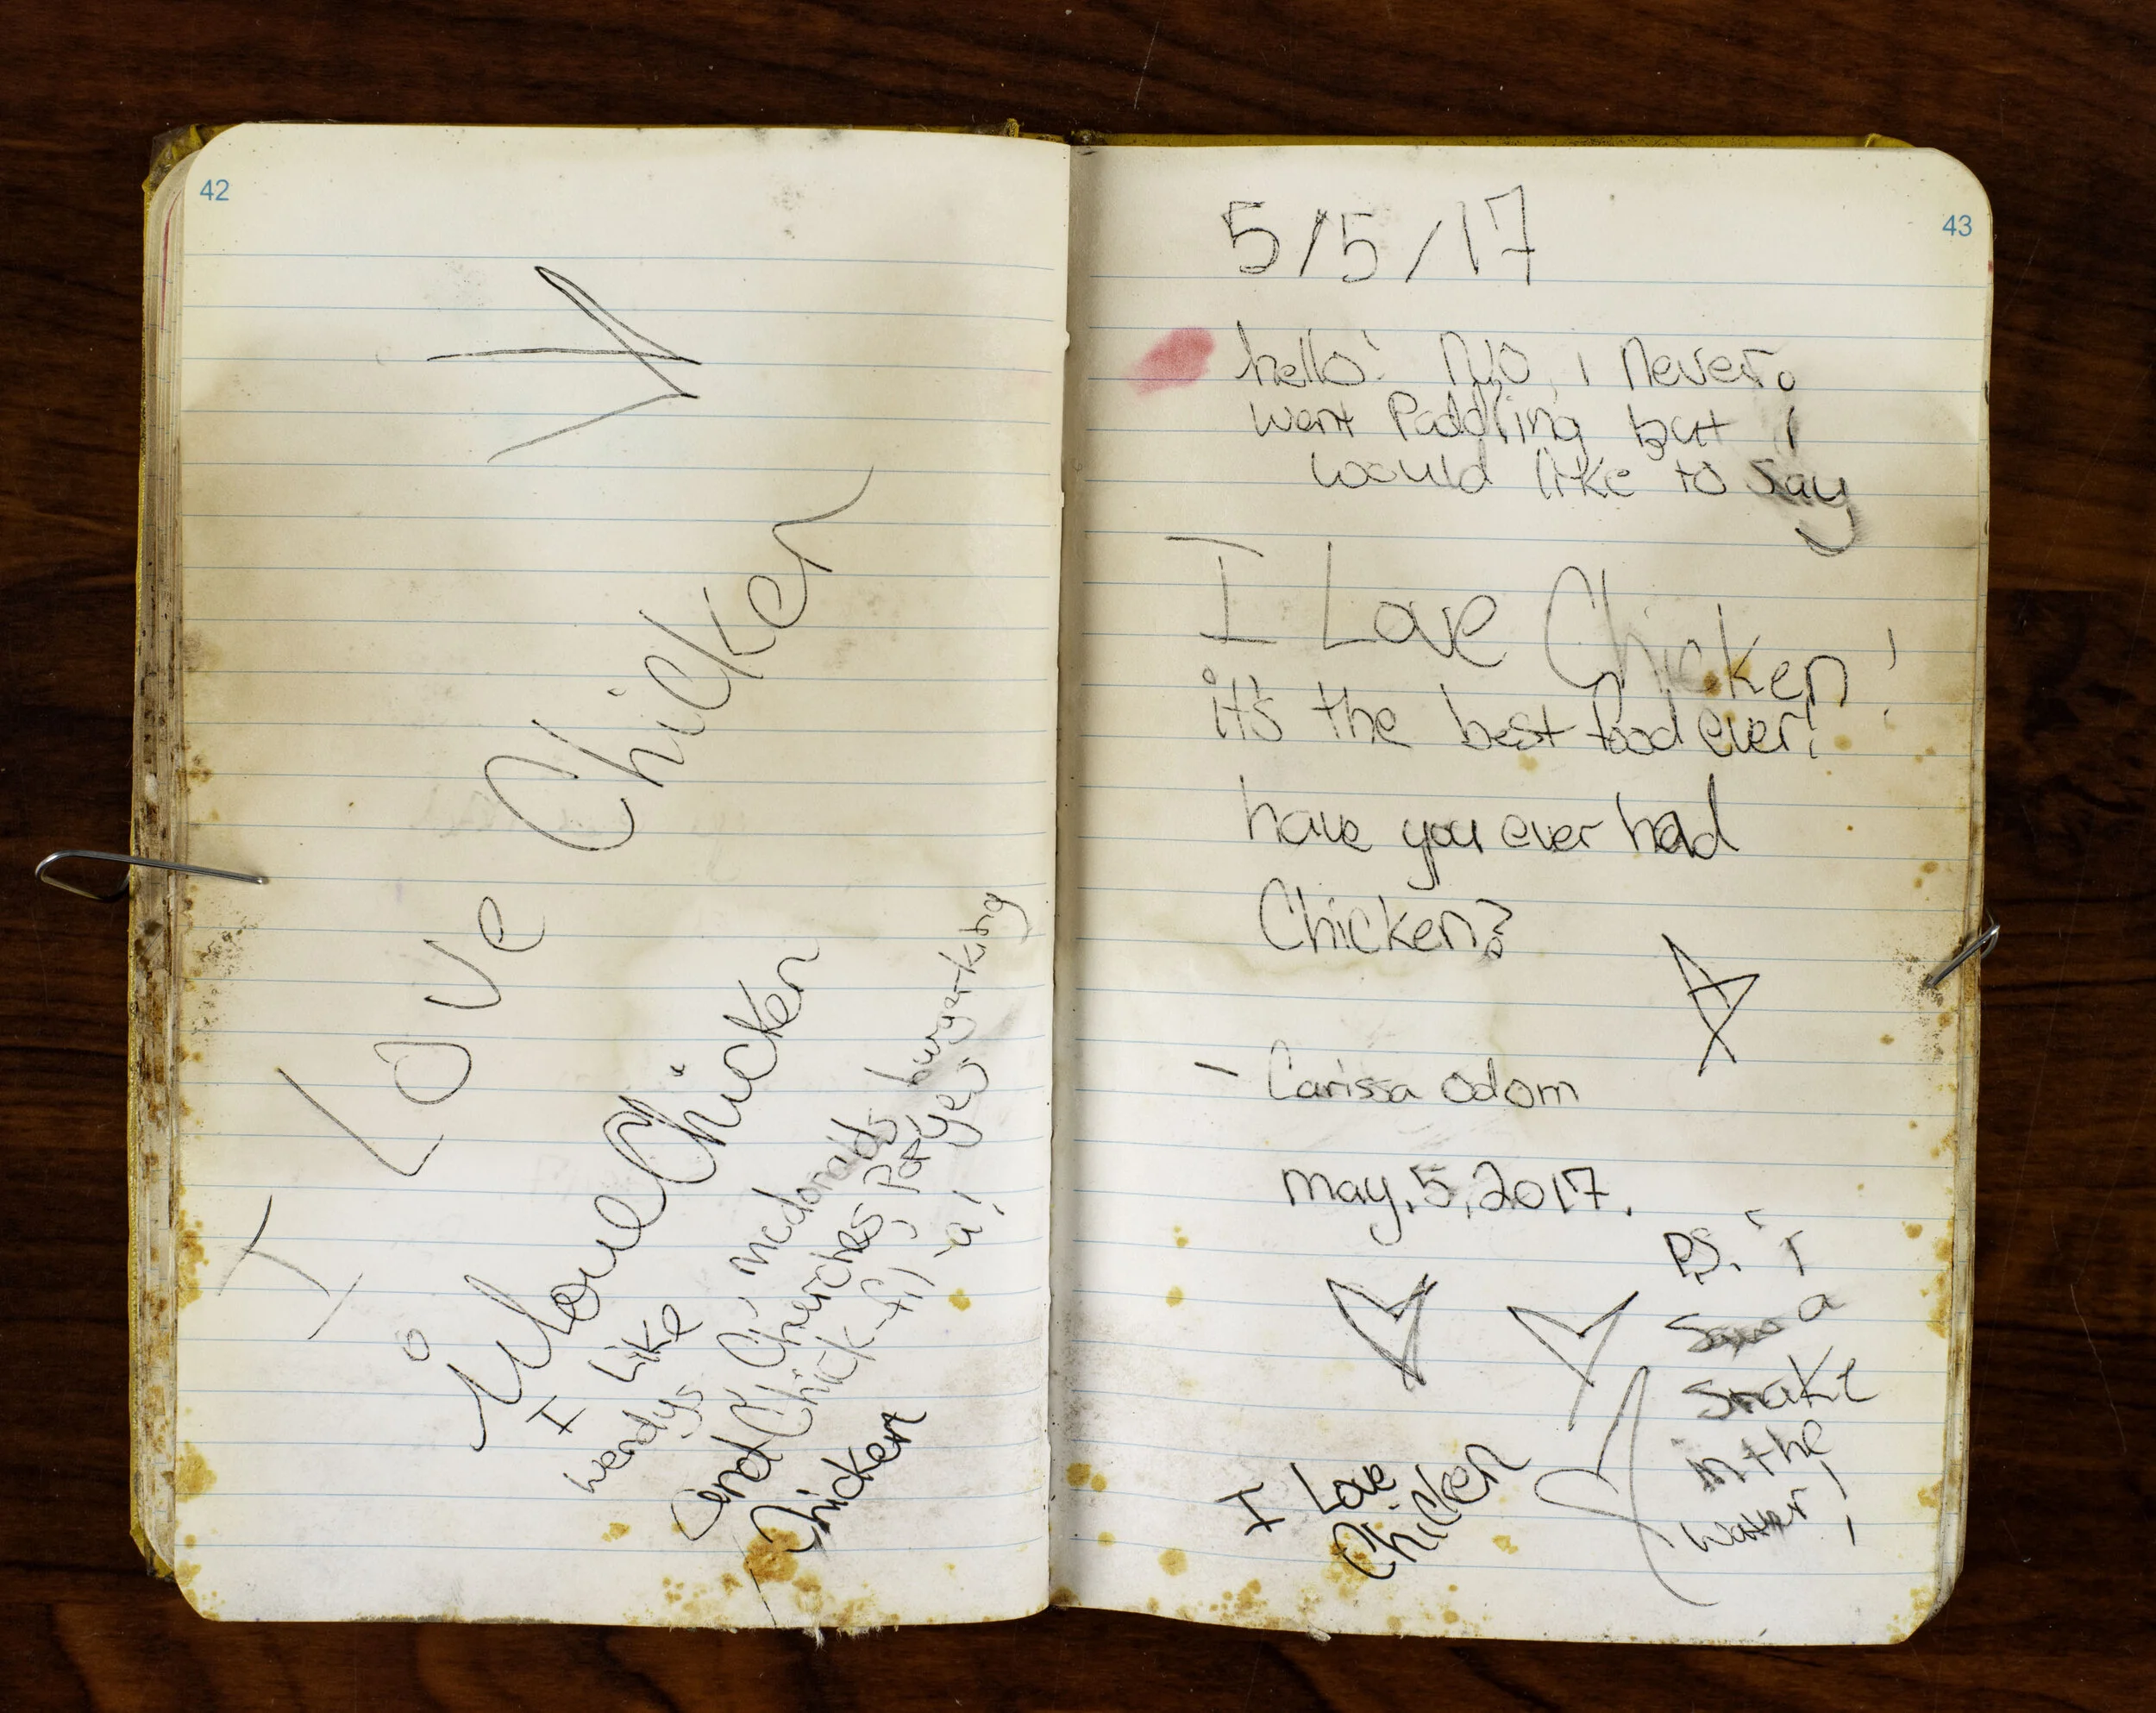 42
I Love Chicken
I Love Chicken
I Like
wendys, mcdonalds, burgerking
and Churches, Popyes
Chick-fil a!
Chicken
43
5/5/17
hello! No, I never
went Paddling but I
would like to say
I Love Chicken!
it's the best food ever!
have you ever had
Chicken?
- Carissa Odom
may. 5, 2017.
P.S. I
saw a
snake
in the
water!
I Love
Chicken